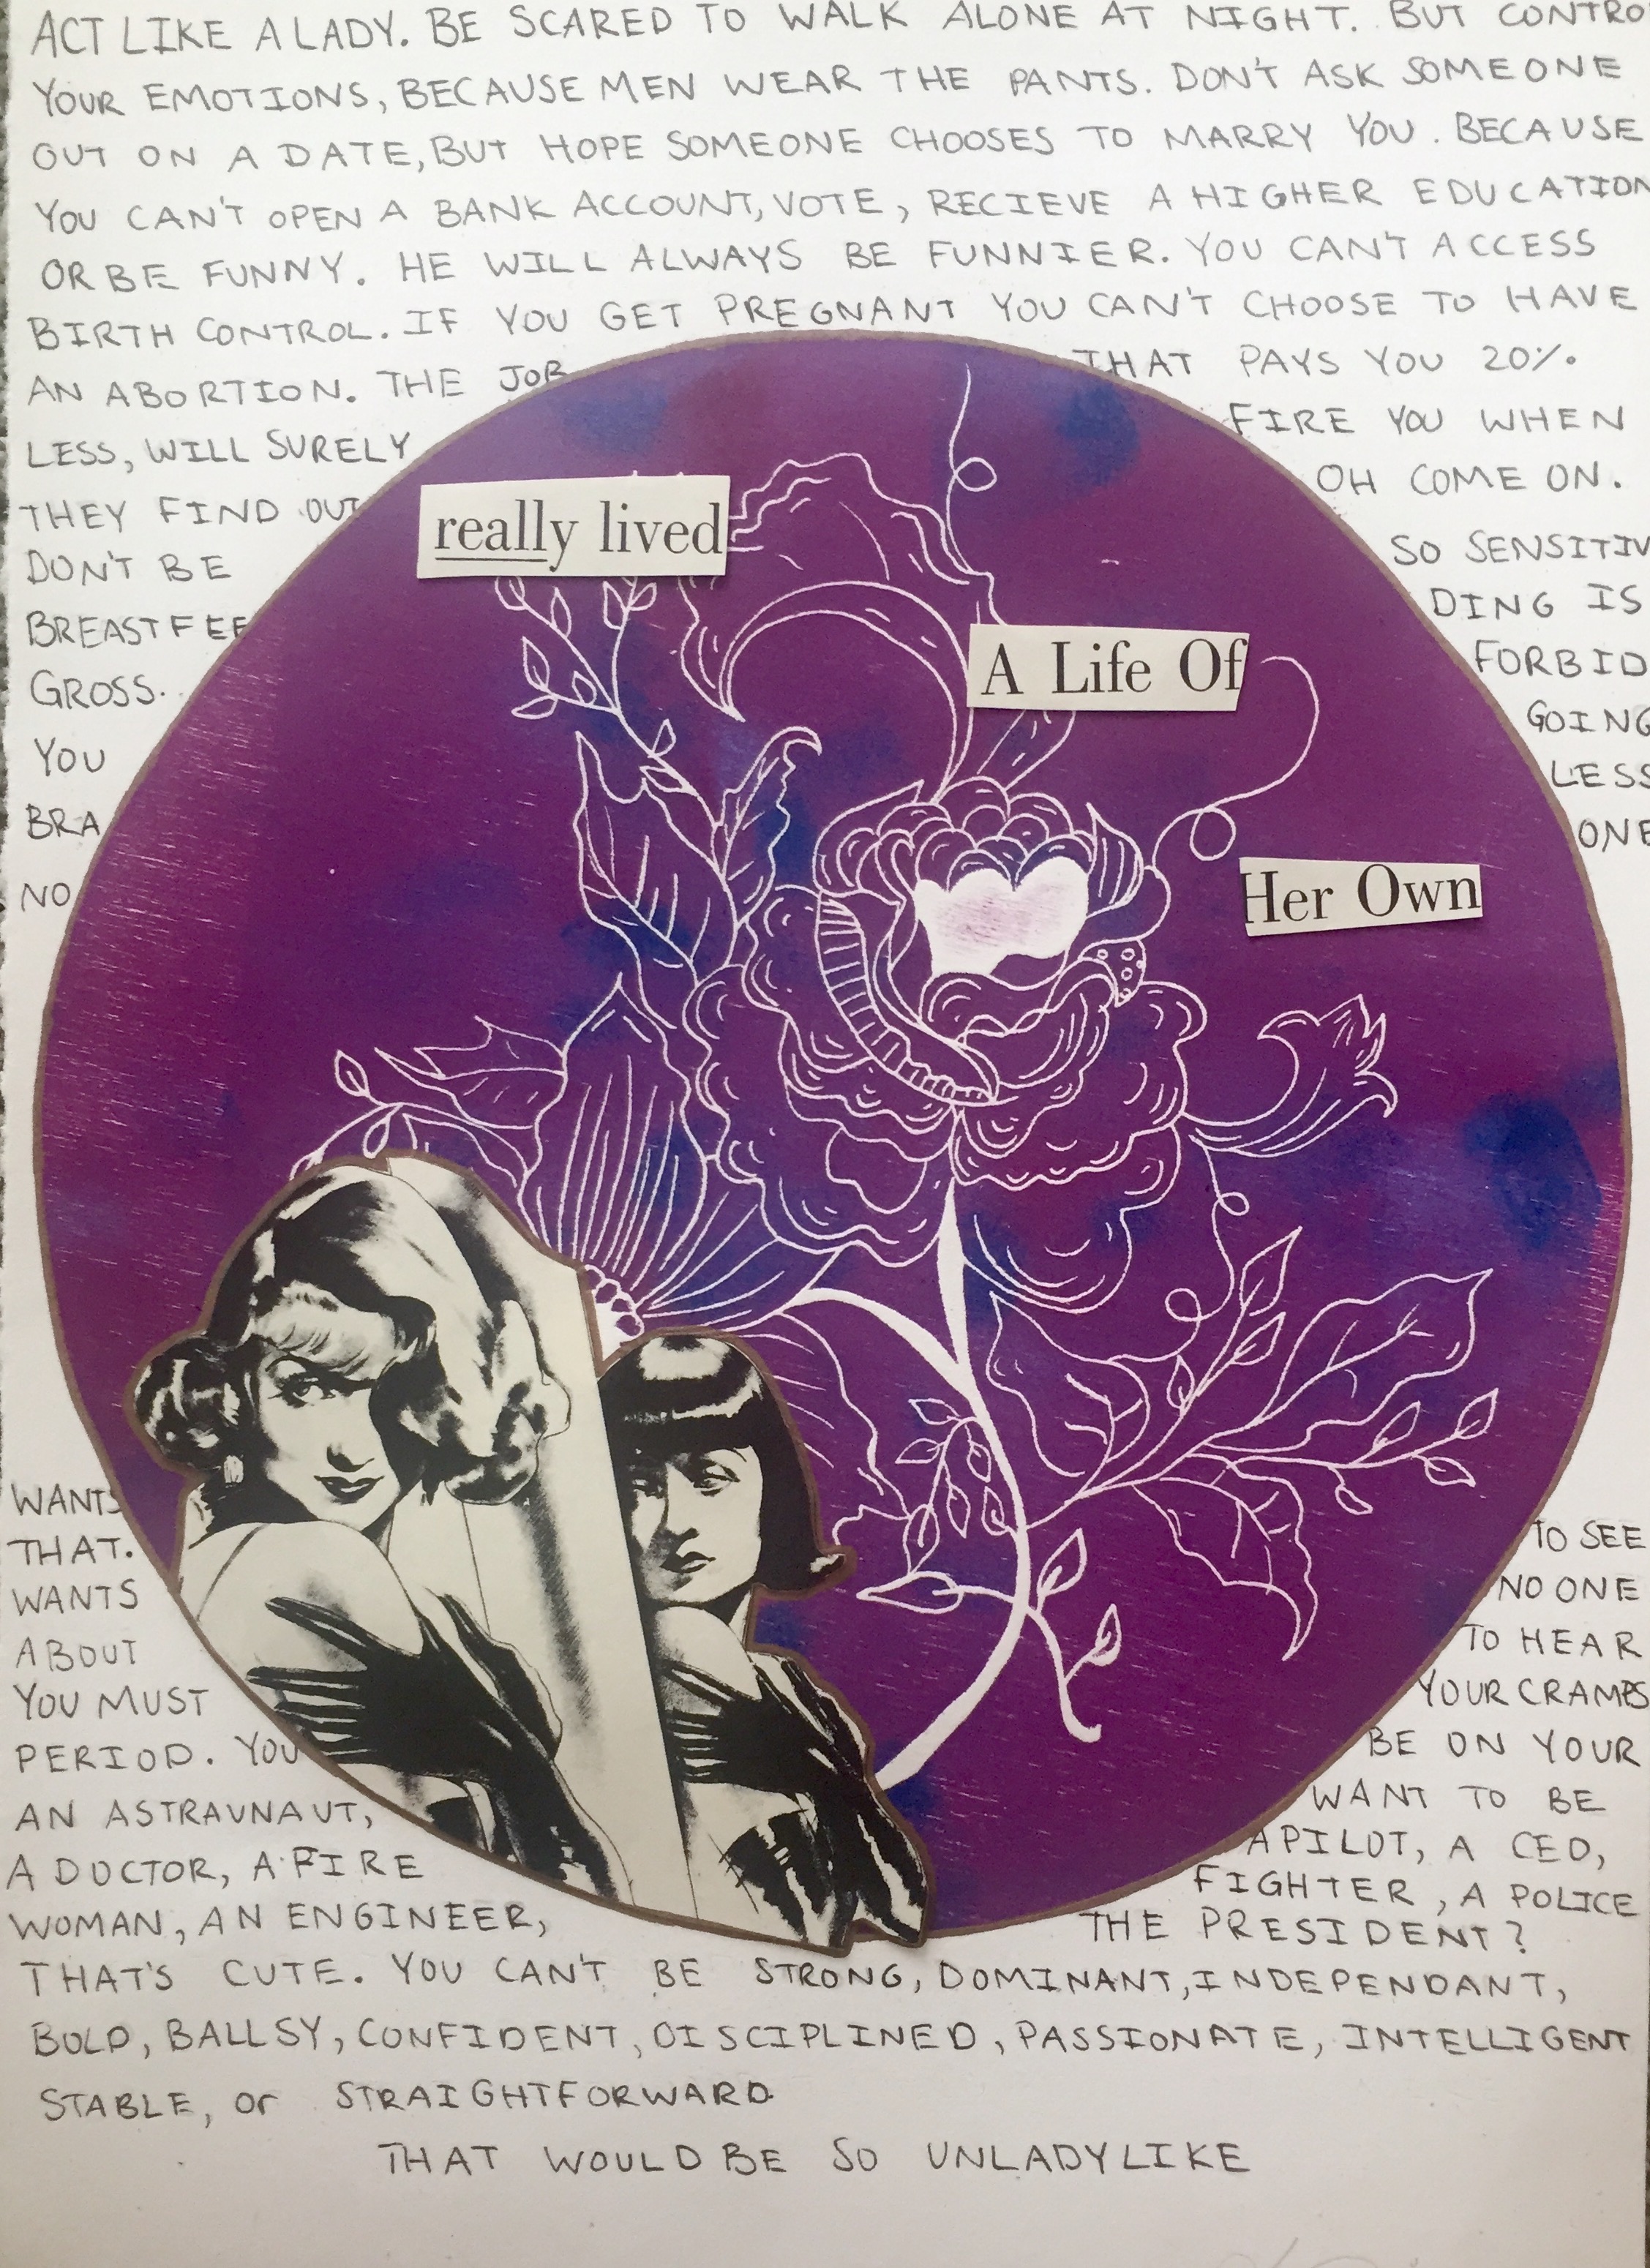 ACT LIKE A LADY. BE SCARED TO WALK ALONE AT NIGHT. BUT CONTRO
YOUR EMOTIONS, BECAUSE MEN WEAR THE PANTS. DON'T ASK SOMEONE
OUT ON A DATE, BUT HOPE SOMEONE CHOOSES TO MARRY YOU. BECAUSE
YOU CAN'T OPEN A BANK ACCOUNT, VOTE, RECIEVE A HIGHER EDUCATION
OR BE FUNNY. HE WILL ALWAYS BE FUNNIER. YOU CAN'T ACCESS
BIRTH CONTROL. IF YOU GET PREGNANT YOU CAN'T CHOOSE TO HAVE
AN ABORTION. THE JOB THAT PAYS YOU 20%
LESS, WILL SURELY FIRE YOU WHEN
THEY FIND OUT OH COME ON.
DON'T BE SO SENSITIV
BREASTFEE DING IS
GROSS. FORBID
YOU GOING
BRA LESS
NO ONE
really lived
A Life Of
Her Own
WANTS TO SEE
THAT. NO ONE
WANTS TO HEAR
ABOUT YOUR CRAMPS
YOU MUST BE ON YOUR
PERIOD. YOU WANT TO BE
AN ASTRAUNAUT, A PILOT, A CEO,
A DOCTOR, A FIRE FIGHTER, A POLICE
WOMAN, AN ENGINEER, THE PRESIDENT?
THAT'S CUTE. YOU CAN'T BE STRONG, DOMINANT, INDEPENDANT,
BOLD, BALLSY, CONFIDENT, DISCIPLINED, PASSIONATE, INTELLIGENT
STABLE, or STRAIGHTFORWARD
THAT WOULD BE SO UNLADYLIKE